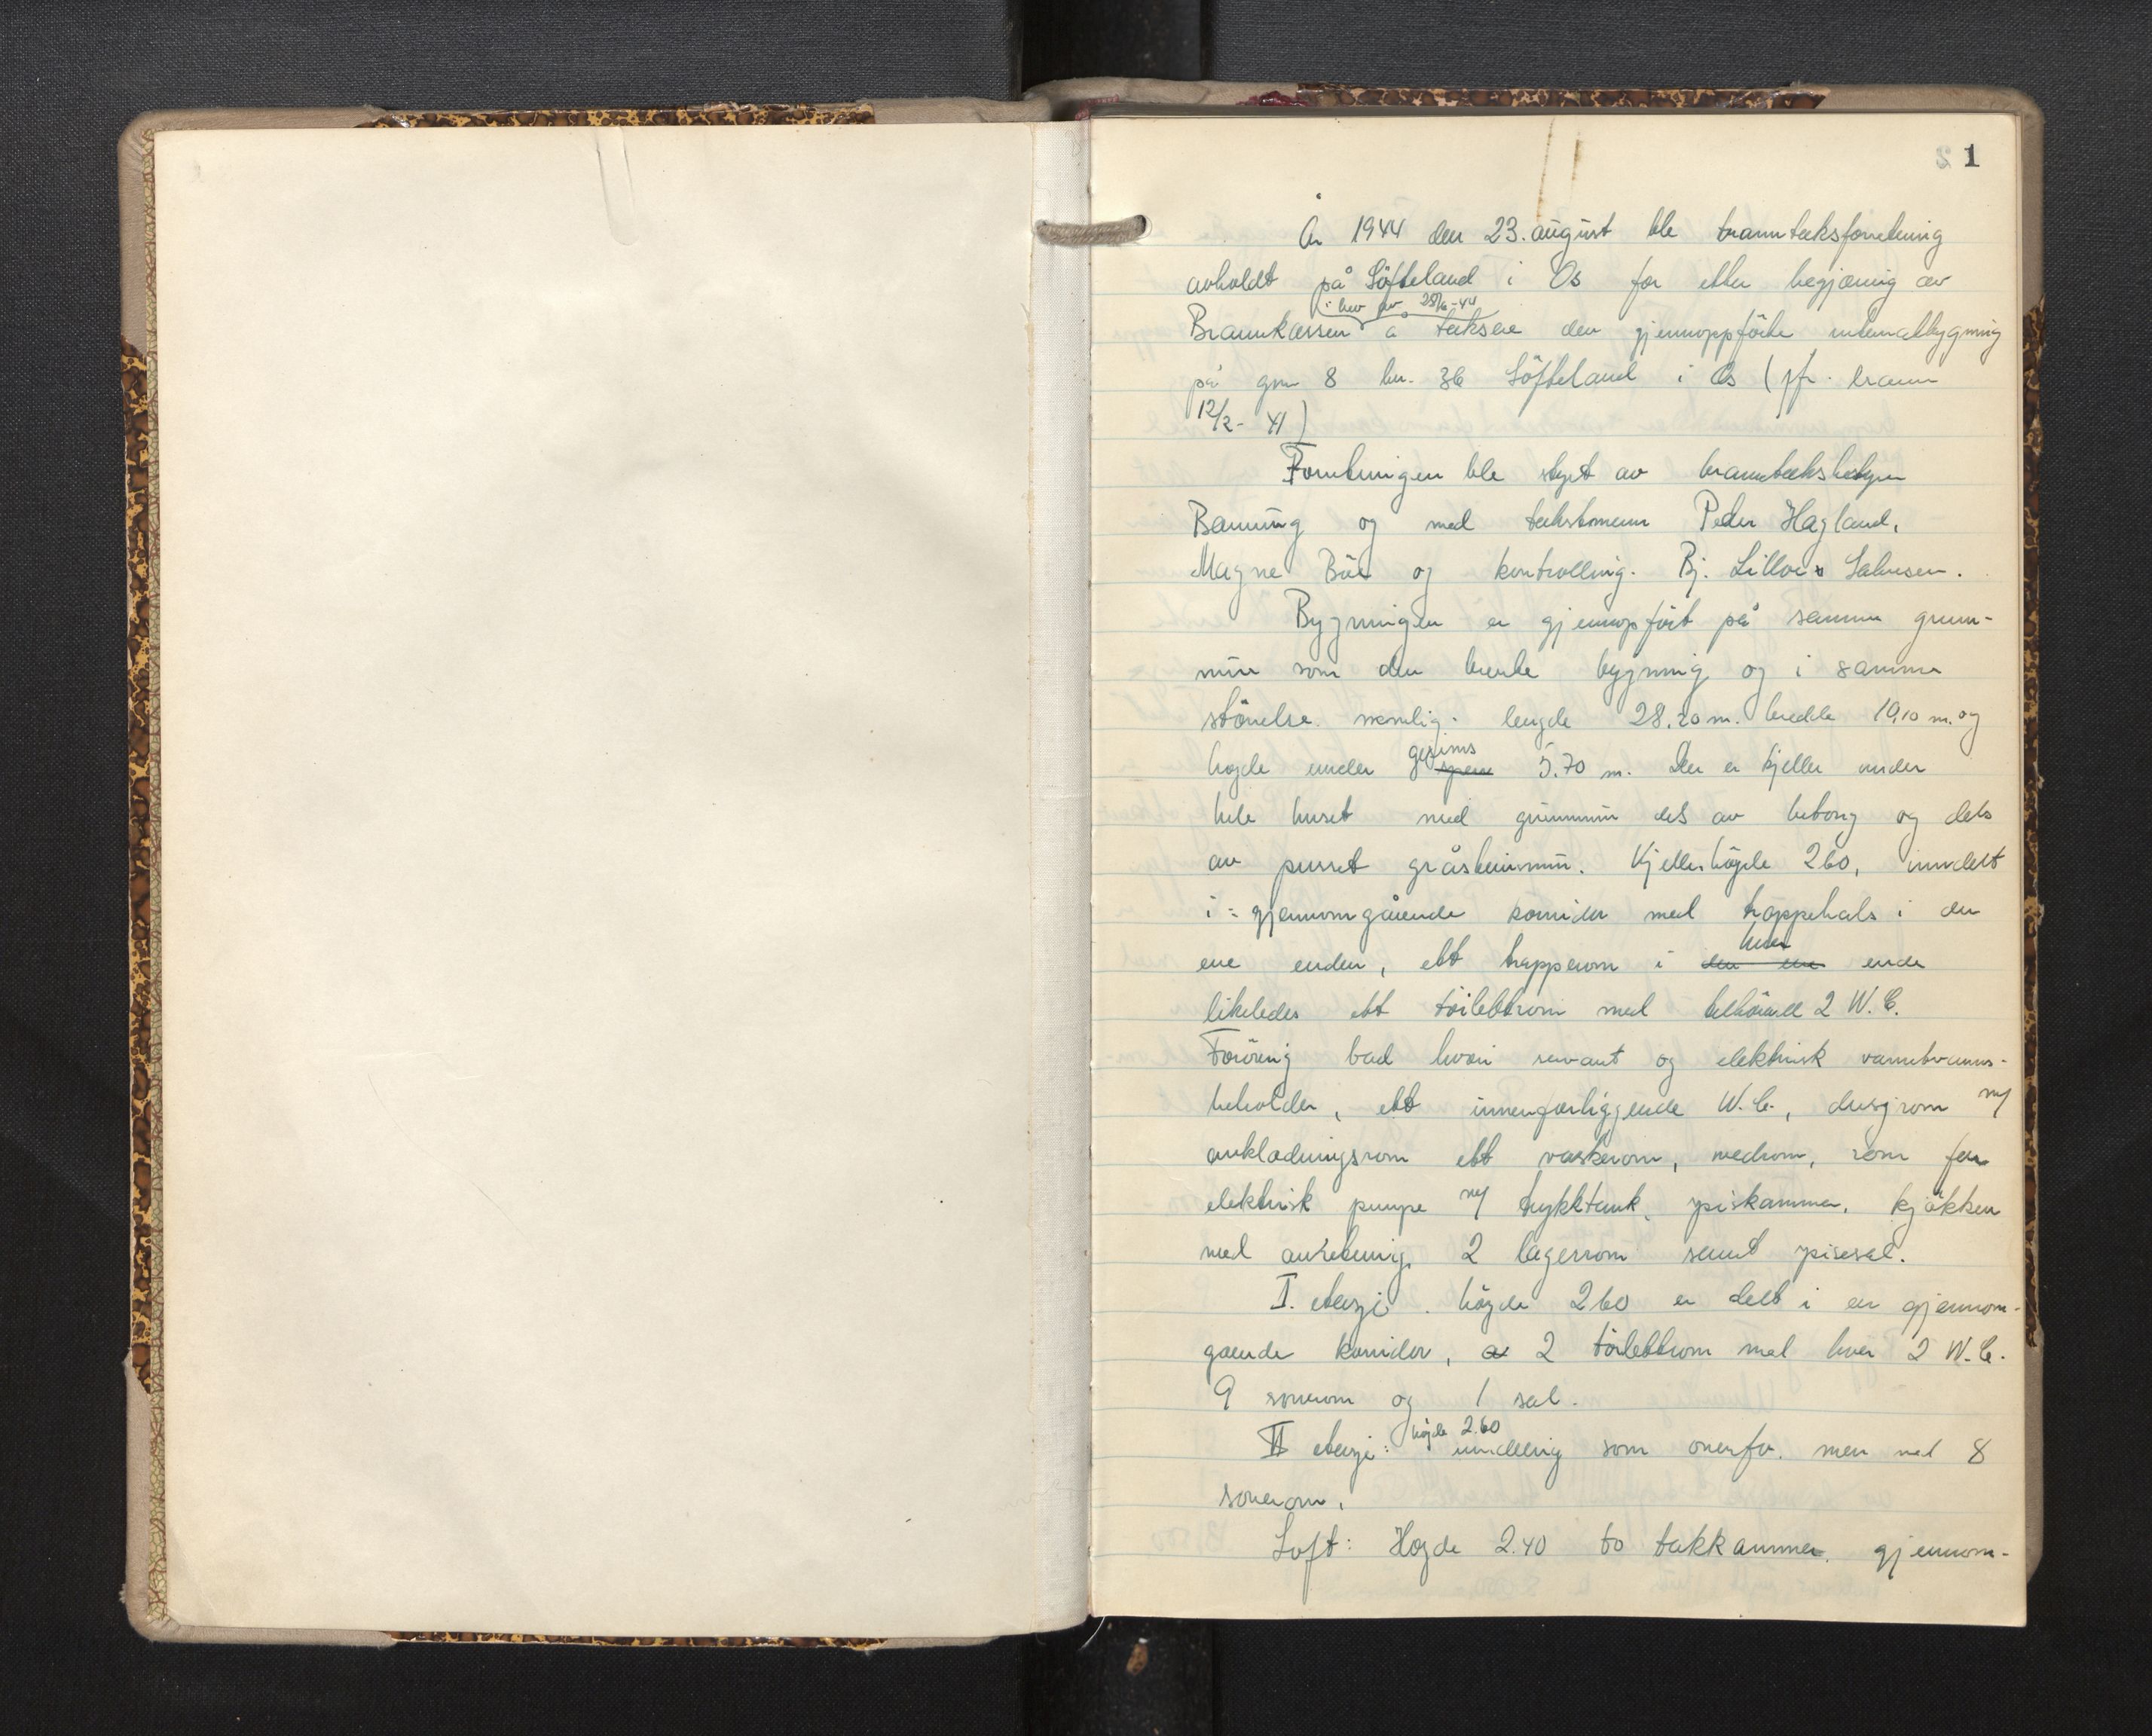 1
År 1944 den 23. august ble branntakstforretning
avholdt på Söfteland i Os for etter begjæring av
i brev av 28/6-44
Brannkassen å taksere den gjennoppförte internatbygning
på gnr 8 bn. 36 Söfteland i Os (jfr. brann
12/2- 41)
Forretningen ble styrt av branntakstbestyrer
Banning og med takstmenn Peder Hagland,
Magne Böe og kontrolling. Bj. Lilloe Salvesen.
Bygningen er gjennopfört på samme grunn-
mur som den brente bygning og i samme
störrelse nemlig: lengde 28.20 m. bredde 10,10 m. og
høyde under gesims 5.70 m. Der er kjeller under
hele huset med grunnmur dels av betong og dels
av pusset gråsteinsmur. Kjellerhöyde 260, inndelt
i: gjennomgående korridor med trappehals i den
ene enden, ett trapperom i hver ende
likeledes ett toilettrom med tilhörende 2 W.C.
Foröverig bad hvori servant og elektrisk varmtvanns-
beholder, ett innenforliggende W.C., dusjrom m/
avkledningsrom ett vaskerom, vedrom, rom for
elektrisk pumpe m/ trykktank, spiskammer, kjökken
med anretning, 2 lagerrom samt spisesal.
I. etasje. höyde 260 er delt i en gjennom-
gående korridor, 2 toilettrom med hver 2 W.C.
9 soverom og 1 sal.
höyde 2.60
II etasje: inndeling som ovenfor. men med 8
soverom.
Loft: Høyde 2.40 to takkammer, gjennom-